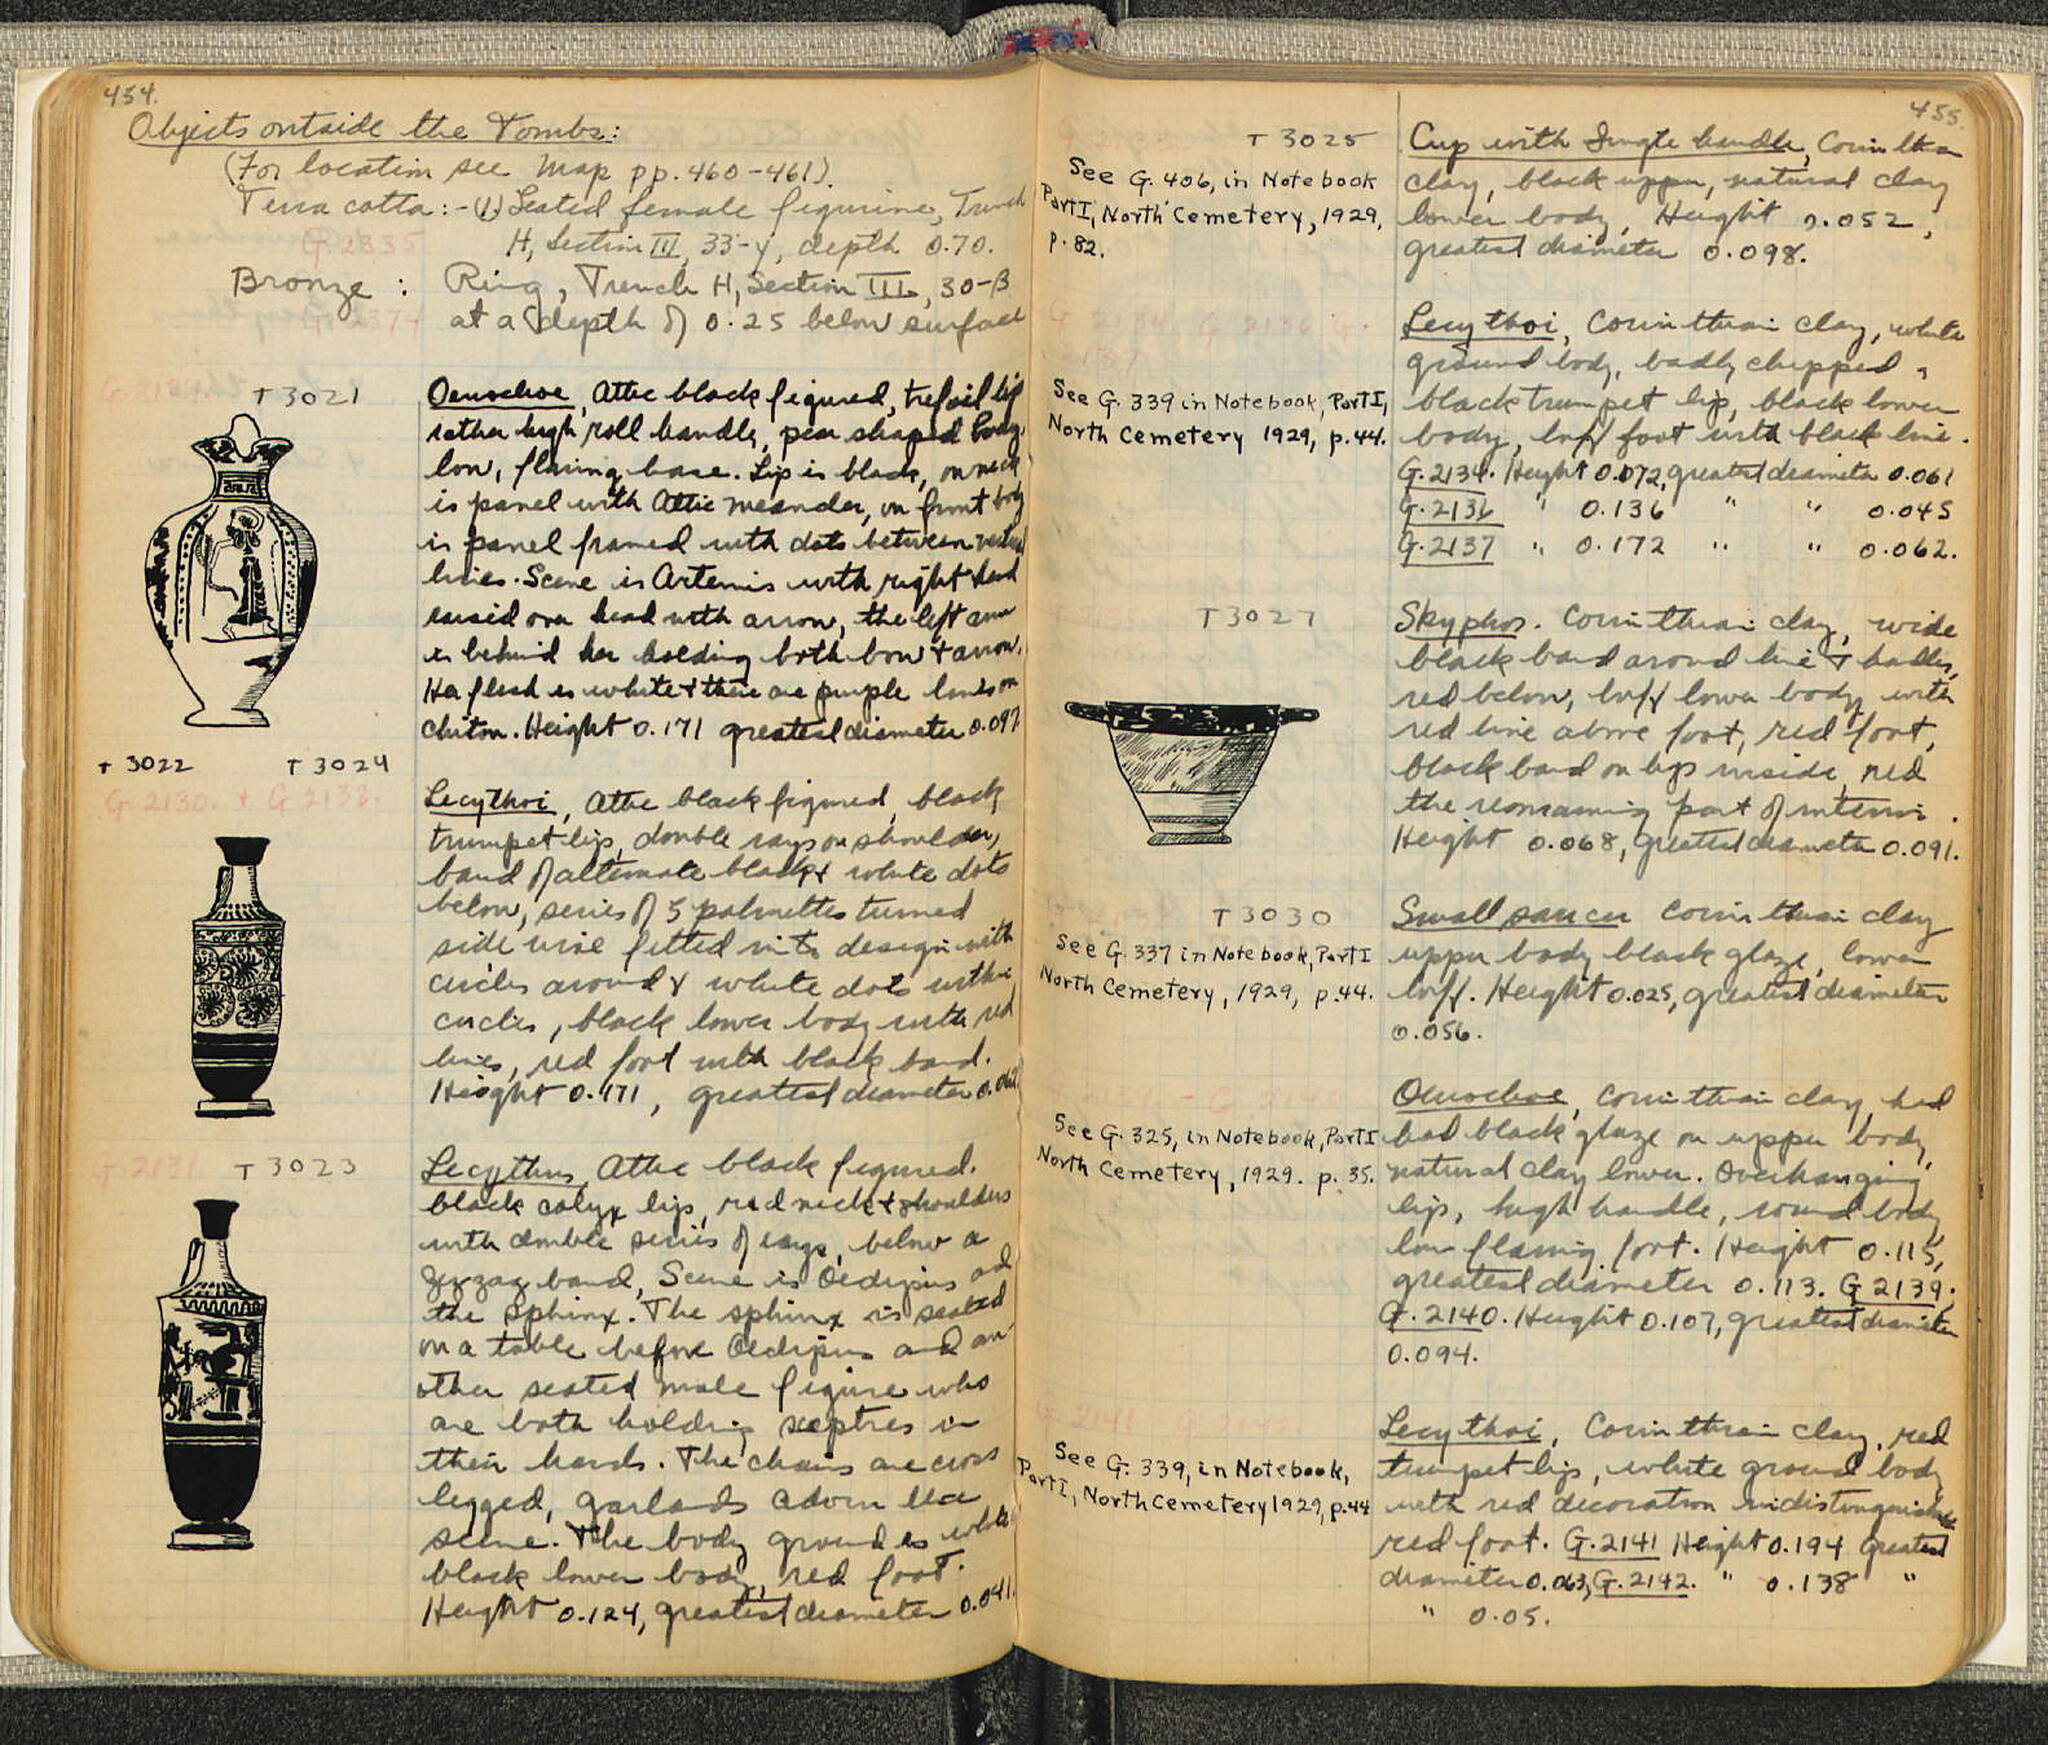 454.
Objects outside the Tombs:
(For location see Map pp. 460-461).
Terra cotta:- (1) Seated female figurine, Trench
G. 2835
H, Section III, 33-y, depth 0.70.
Bronze : Ring, Trench H, Section III, 30-B
at a depth of 0.25 below surface
T 3021
Oenochoe, Attic black figured, trefoil lip
rather high roll handle, pear shaped body,
low, flaring base. Lip is black, on neck
is panel with Attic meander, on front body
is panel framed with dots between vertical
lines. Scene is Artemis with right hand
raised over head with arrow, the left arm
is behind her holding both bow + arrow.
Her flesh is white + there are purple lines on
chiton. Height 0.171 greatest diameter 0.097
T 3022 T 3024
G. 2130. + G 2132.
Lecythoi, Attic black figured, black
trumpet lip, double rays on shoulder,
band of alternate black + white dots
below, series of 5 palmettes turned
side wise fitted into design with
circles around + white dots within
circles, black lower body with red
lines, red foot with black band.
Height 0.171, greatest diameter 0.062
G. 2131 T 3023
Lecythus, Attic black figured.
black calyx lip, red neck + shoulders
with double series of rays, below a
zigzag band, Scene is Oedipus and
the sphinx. The sphinx is seated
on a table before Oedipus and an-
other seated male figure who
are both holding sceptres in
their hands. The chairs are cross
legged, garlands adorn the
scene. The body ground is white
black lower body, red foot.
Height 0.124, greatest diameter 0.041.
455.
T 3025
See G. 406, in Notebook
Part I, North Cemetery, 1929,
p. 82.
Cup with Single handle, Corinthian
clay, black upper, natural clay
lower body, Height 0.052,
greatest diameter 0.098.
G 2134 G 2136 G.
2137
See G. 339 in Notebook, Part I,
North Cemetery 1929, p.44.
Lecythoi, Corinthian clay, white
ground body, badly chipped,
black trumpet lip, black lower
body, buff foot with black line.
G.2134. Height 0.072, greatest diameter 0.061
G.2136 " 0.136 " " 0.045
G.2137 " 0.172 " " 0.062.
T 3027
Skyphos. Corinthian clay, wide
black band around line + handles,
red below, buff lower body with
red line above foot, red foot,
black band on lips inside, red
the remaining part of interior.
Height 0.068, greatest diameter 0.091.
T 3030
See G. 337 in Notebook, Part I
North Cemetery, 1929, p.44.
Small saucer Corinthian clay
upper body black glaze, lower
buff. Height 0.025, greatest diameter
0.056.
See G. 325, in Notebook, Part I
North Cemetery, 1929. p. 35.
Oenochoe, Corinthian clay, had
had black glaze on upper body,
natural clay lower. Overhanging
lip, high handle, round body
low flaring foot. Height 0.115,
greatest diameter 0.113. G 2139;
G. 2140. Height 0.107, greatest diameter
0.094.
See G. 339, in Notebook,
Part I, North Cemetery 1929, p.44
Lecythoi, Corinthian clay, red
trumpet lip, white ground body
with red decoration indistinguishable
red foot. G.2141 Height 0.194 greatest
diameter 0.063, G.2142. " 0.138 "
" 0.05.